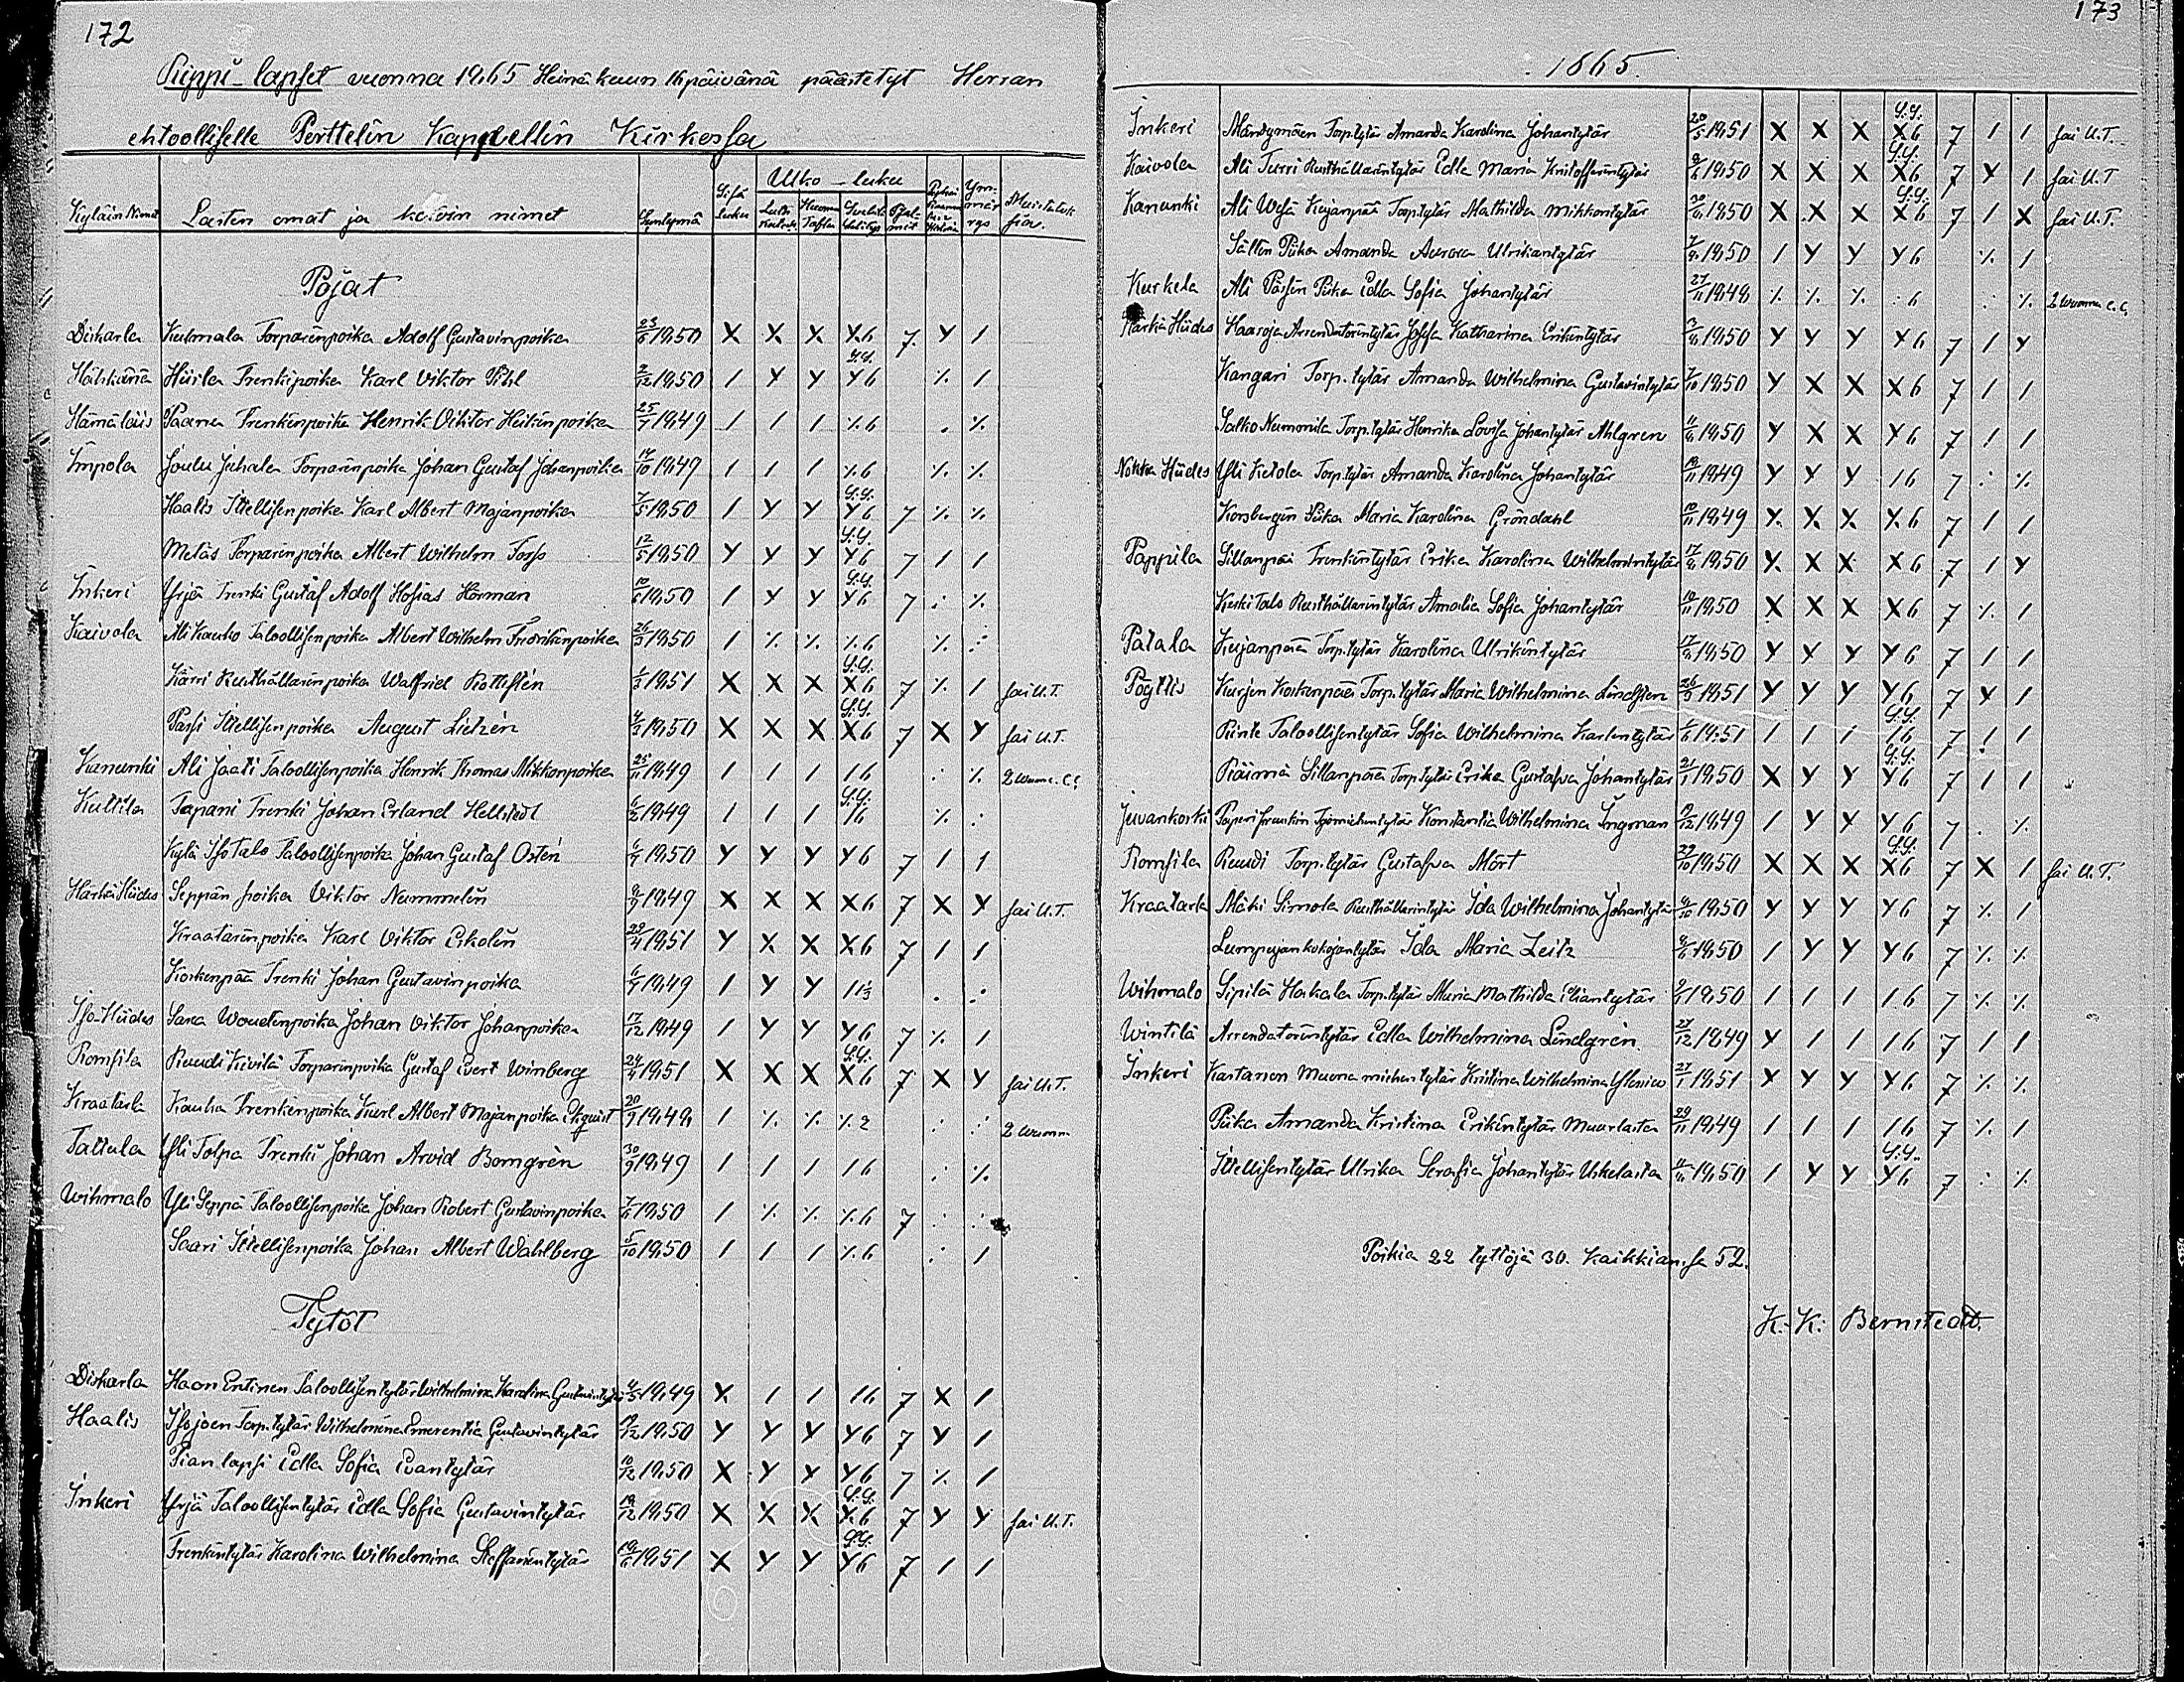 172
Rippi-lapset vuonna 1865 Heinäkuun 16 päivänä päästetyt Herran
ehtoolliselle Perttelin Kappellin Kirkossa
Kyläin Nimet Lasten omat ja kotoin nimet Syntymä Sisä Luku Ulko-luku Muistutuksia
Pojat
Diskarla Kulmala Torparinpoika Adolf Gustavinpoika 23/6 1850 X X X X6 7 Y 1
Hähkänä Hiirla Trenkipoika Karl Viktor Pihl 2/12 1850 1 Y Y Y6 % 1
Hämäläis Paana Trenkinpoika Henrik Viktor Heikinpoika 25/7 1849 1 1 1 %6 . %
Impola Joulu Juhala Torparinpoika Johan Gustaf Johanpoika 14/10 1849 1 1 1 %6 % %
Haalis Itellisenpoika Karl Albert Majanpoika 7/5 1850 1 Y Y Y6 7 % %
Metäs Torparinpoika Albert Wilhelm Forss 12/5 1850 Y Y Y Y6 7 1 1
Inkeri Yrjä Trenki Gustaf Adolf Hosias Hörman 10/6 1850 1 Y Y Y6 7 : %
Kaivola Ali Kauko Taloollisenpoika Albert Wilhelm Fredrikinpoika 26/3 1850 1 % % %6 %
Kärri Rusthållarinpoika Walfried Rottislén 1/3 1851 X X X X6 7 % 1 sai U.T.
Passi Itellisenpoika August Lietzén 4/3 1850 X X X X6 7 X Y sai U.T.
Kanunki Ali Jaati Taloollisenpoika Henrik Thomas Mikkonpoika 25/11 1849 1 1 1 16 : %
Kultila Tapani Trenki Johan Erland Hellstedt 6/2 1849 1 1 1 16 % :
Kylä Iso Talo Taloollisenpoika Johan Gustaf Ostén 6/4 1850 Y Y Y Y6 7 1 1
Härkä Hiides Seppän poika Viktor Nummelin 9/7 1849 X X X X6 7 X Y sai U.T.
Kraatarinpoika Karl Viktor Eskolin 29/4 1851 Y X X X6 7 1 1
Koskenpää Trenki Johan Gustavinpoika 6/4 1849 1 Y Y
Iso-Hiides Sara Woudinpoika Johan Viktor Johanpoika 17/12 1849 1 Y Y Y6 7 % 1
Romsila Ruudi Kivilä Torparinpoika Gustaf Evert Winberg 24/4 1851 X X X X6 7 X Y sai U.T.
Kraatarla Kauha Trenkinpoika Karl Albert Majanpoika 20/9 1848 1 % % %2 : :
Tattula Yli Tolpa Trenki Johan Arvid Bomgrén 30/9 1849 1 1 1 16 : %
Wihmalo Yli Seppä Taloollisenpoika Johan Robert Gustavinpoika 7/6 1850 1 % % %6 7 : :
Saari Itellisenpoika Johan Albert Wahlberg 5/10 1850 1 1 1 %6 : 1
Tytöt
Diskarla Haon Entinen Taloollisentytär Wilhelmina Karolina Gustavintytär 4/5 1849 X 1 1 16 7 X 1
Haalis Isojoen Torp.tytär Wilhelmina Emerentia Gustavintytär 19/12 1850 Y Y Y Y6 7 Y 1
Pian lapsi Edla Sofia Evantytär 10/12 1850 X Y Y Y6 7 % 1
Inkeri Yrjä Taloollisentytär Edla Sofia Gustavintytär 19/12 1850 X X X X6 7 Y Y sai U.T.
Trenkintytär Karolina Wilhelmina Steffanintytär 18/6 1851 X Y Y Y6 7 1 1
173
1865.
Inkeri Mäntymäen Torp.tytär Amanda Karolina Johantytär 20/5 1851 X X X X6 7 1 1 sai U.T.
Kaivola Ali Turri Rusthållarintytär Edla Maria Kristofferintytär 9/6 1850 X X X X6 7 Y 1 sai U.T
Kanunki Ali Wesä Kujanpää Torp.tytär Mathilda Mikkontytär 30/6 1850 X X X X6 7 1 X sai U.T.
Sälten Piika Amanda Aurora Ulrikantytär 7/9 1850 1 Y Y Y6 % 1
Kurkela Ali Pässin Piika Edla Sofia Johantytär 27/11 1848 % % % 6 : %
Härkä Hiides Haaroja Arrendatorintytär Josefa Katharina Erikintytär 3/6 1850 Y Y Y Y6 7 1 Y
Kangari Torp.tytär Amanda Wilhelmina Gustavintytär 7/10 1850 Y X X X6 7 1 1
Salko Nummila Torp.tytär Henrika Lovisa Johantytär Ahlgren 11/6 1850 Y X X Y6 7 1 1
Nokka Hiides Yli Ketola Torp.tytär Amanda Karolina Johantytär 19/11 1849 Y Y Y 16 7 : %
Korsbergin Piika Maria Karolina Gröndahl 10/11 1849 Y X X Y6 7 1 1
Pappila Sillanpää Trenkintytär Erika Karolina Wilhelmintytär 17/9 1850 Y X X X6 7 1 Y
Keski Talo Rusthållarintytär Amalia Sofia Johantytär 10/11 1850 X X X X6 7 % 1
Patala Kujanpää Torp.tytär Karolina Ulrikintytär 17/9 1850 Y Y Y Y6 7 1 1
Pöytiis Kurjen Koskenpään Torp.tytär Maria Wilhelmina Lindsten 26/3 1851 Y Y Y Y6 7 Y 1
Rinte Taloollisentytär Sofia Wilhelmina Karlintytär 1/6 1851 1 1 1 16 7 1 1
Räimä Sillanpään Torp.tytär Erika Gustafva Johantytär 21/1 1850 X Y Y Y6 7 1 1
Juvankoski Konstantia Wilhelmina Ingman 9/12 1849 1 Y Y Y6 7 . %
Romsila Ruudi Torp.tytär Gustafva Mört 29/10 1850 X X X X6 7 X 1 sai U.T.
Kraatarla Mäki Simola Rusthållarintytär Ida Wilhelmina Johantytär 9/10 1850 Y Y Y Y6 7 % 1
Ida Maria Leitz 9/6 1850 1 Y Y Y6 7 % %
Wihmalo Sipilä Hakala Torp.tytär Maria Mathilda Eliantytär 9/6 1850 1 1 1 16 7 % %
Wintilä Arrendatorintytär Edla Wilhelmina Lindgrén 27/12 1849 Y 1 1 16 7 1 1
Inkeri Kartanon Muonamiehentytär Kristina Wilhelmina Ylenius 27/1 1851 Y Y Y Y6 7 % %
Piika Amanda Kristina Erikintytär Muurlasta 29/11 1849 1 1 1 16 7 % 1
Itellisentytär Ulrika Serafia Johantytär Uskelasta 11/6 1850 1 Y Y Y6 7 : %
Poikia 22 tyttöjä 30. Kaikkiansa 52.
K. K: Bernstedt.